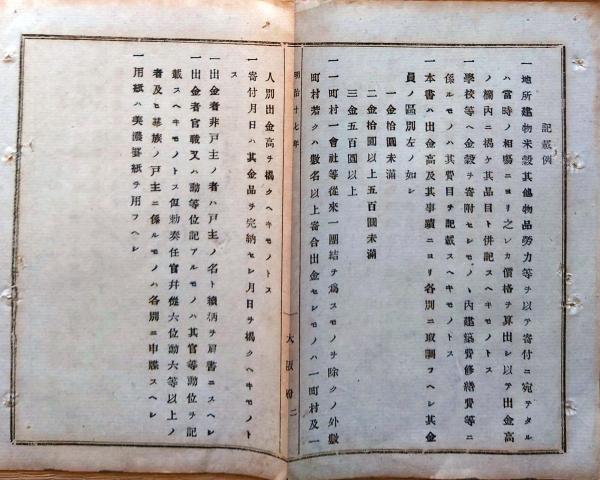 記載例
一地所建物米穀其他物品勞力等ヲ以テ寄付ニ宛テタル
ハ當時ノ相場ニヨリ之レカ價格ヲ算出シ以テ出金高
ノ欄內ニ掲ケ其品目ト併記スヘキモノトス
一學校等ヘ金穀ヲ寄附セシモノヽ內建築費修繕費等ニ
係ルモノハ其費目ヲ記載スヘキモノトス
一本書ハ出金高及其事蹟ニヨリ各別ニ取調フヘシ其金
員ノ區別左ノ如シ
一金拾圓未滿
二金拾圓以上五百圓未滿
三金五百圓以上
一一町村一會社等從來一團結ヲ爲スモノヲ除クノ外數
町村若クハ數名以上寄合出金セシモノハ一町村及一
明治十七年
大阪府 二
人別出金高ヲ掲クヘキモノトス
一寄付月日ハ其金品ヲ完納セシ月日ヲ掲クヘキモノト
ス
一出金者非戸主ノ者ハ戸主ノ名ト續柄ヲ肩書ニスヘシ
一出金者官職又ハ勳等位記アルモノハ其官等勳位ヲ記
載スヘキモノトス但勅奏任官幷從六位勳六等以上ノ
者及ヒ華族ノ戸主ニ係ルモノハ各別ニ申牒スヘシ
一用紙ハ美濃罫紙ヲ用フヘシ